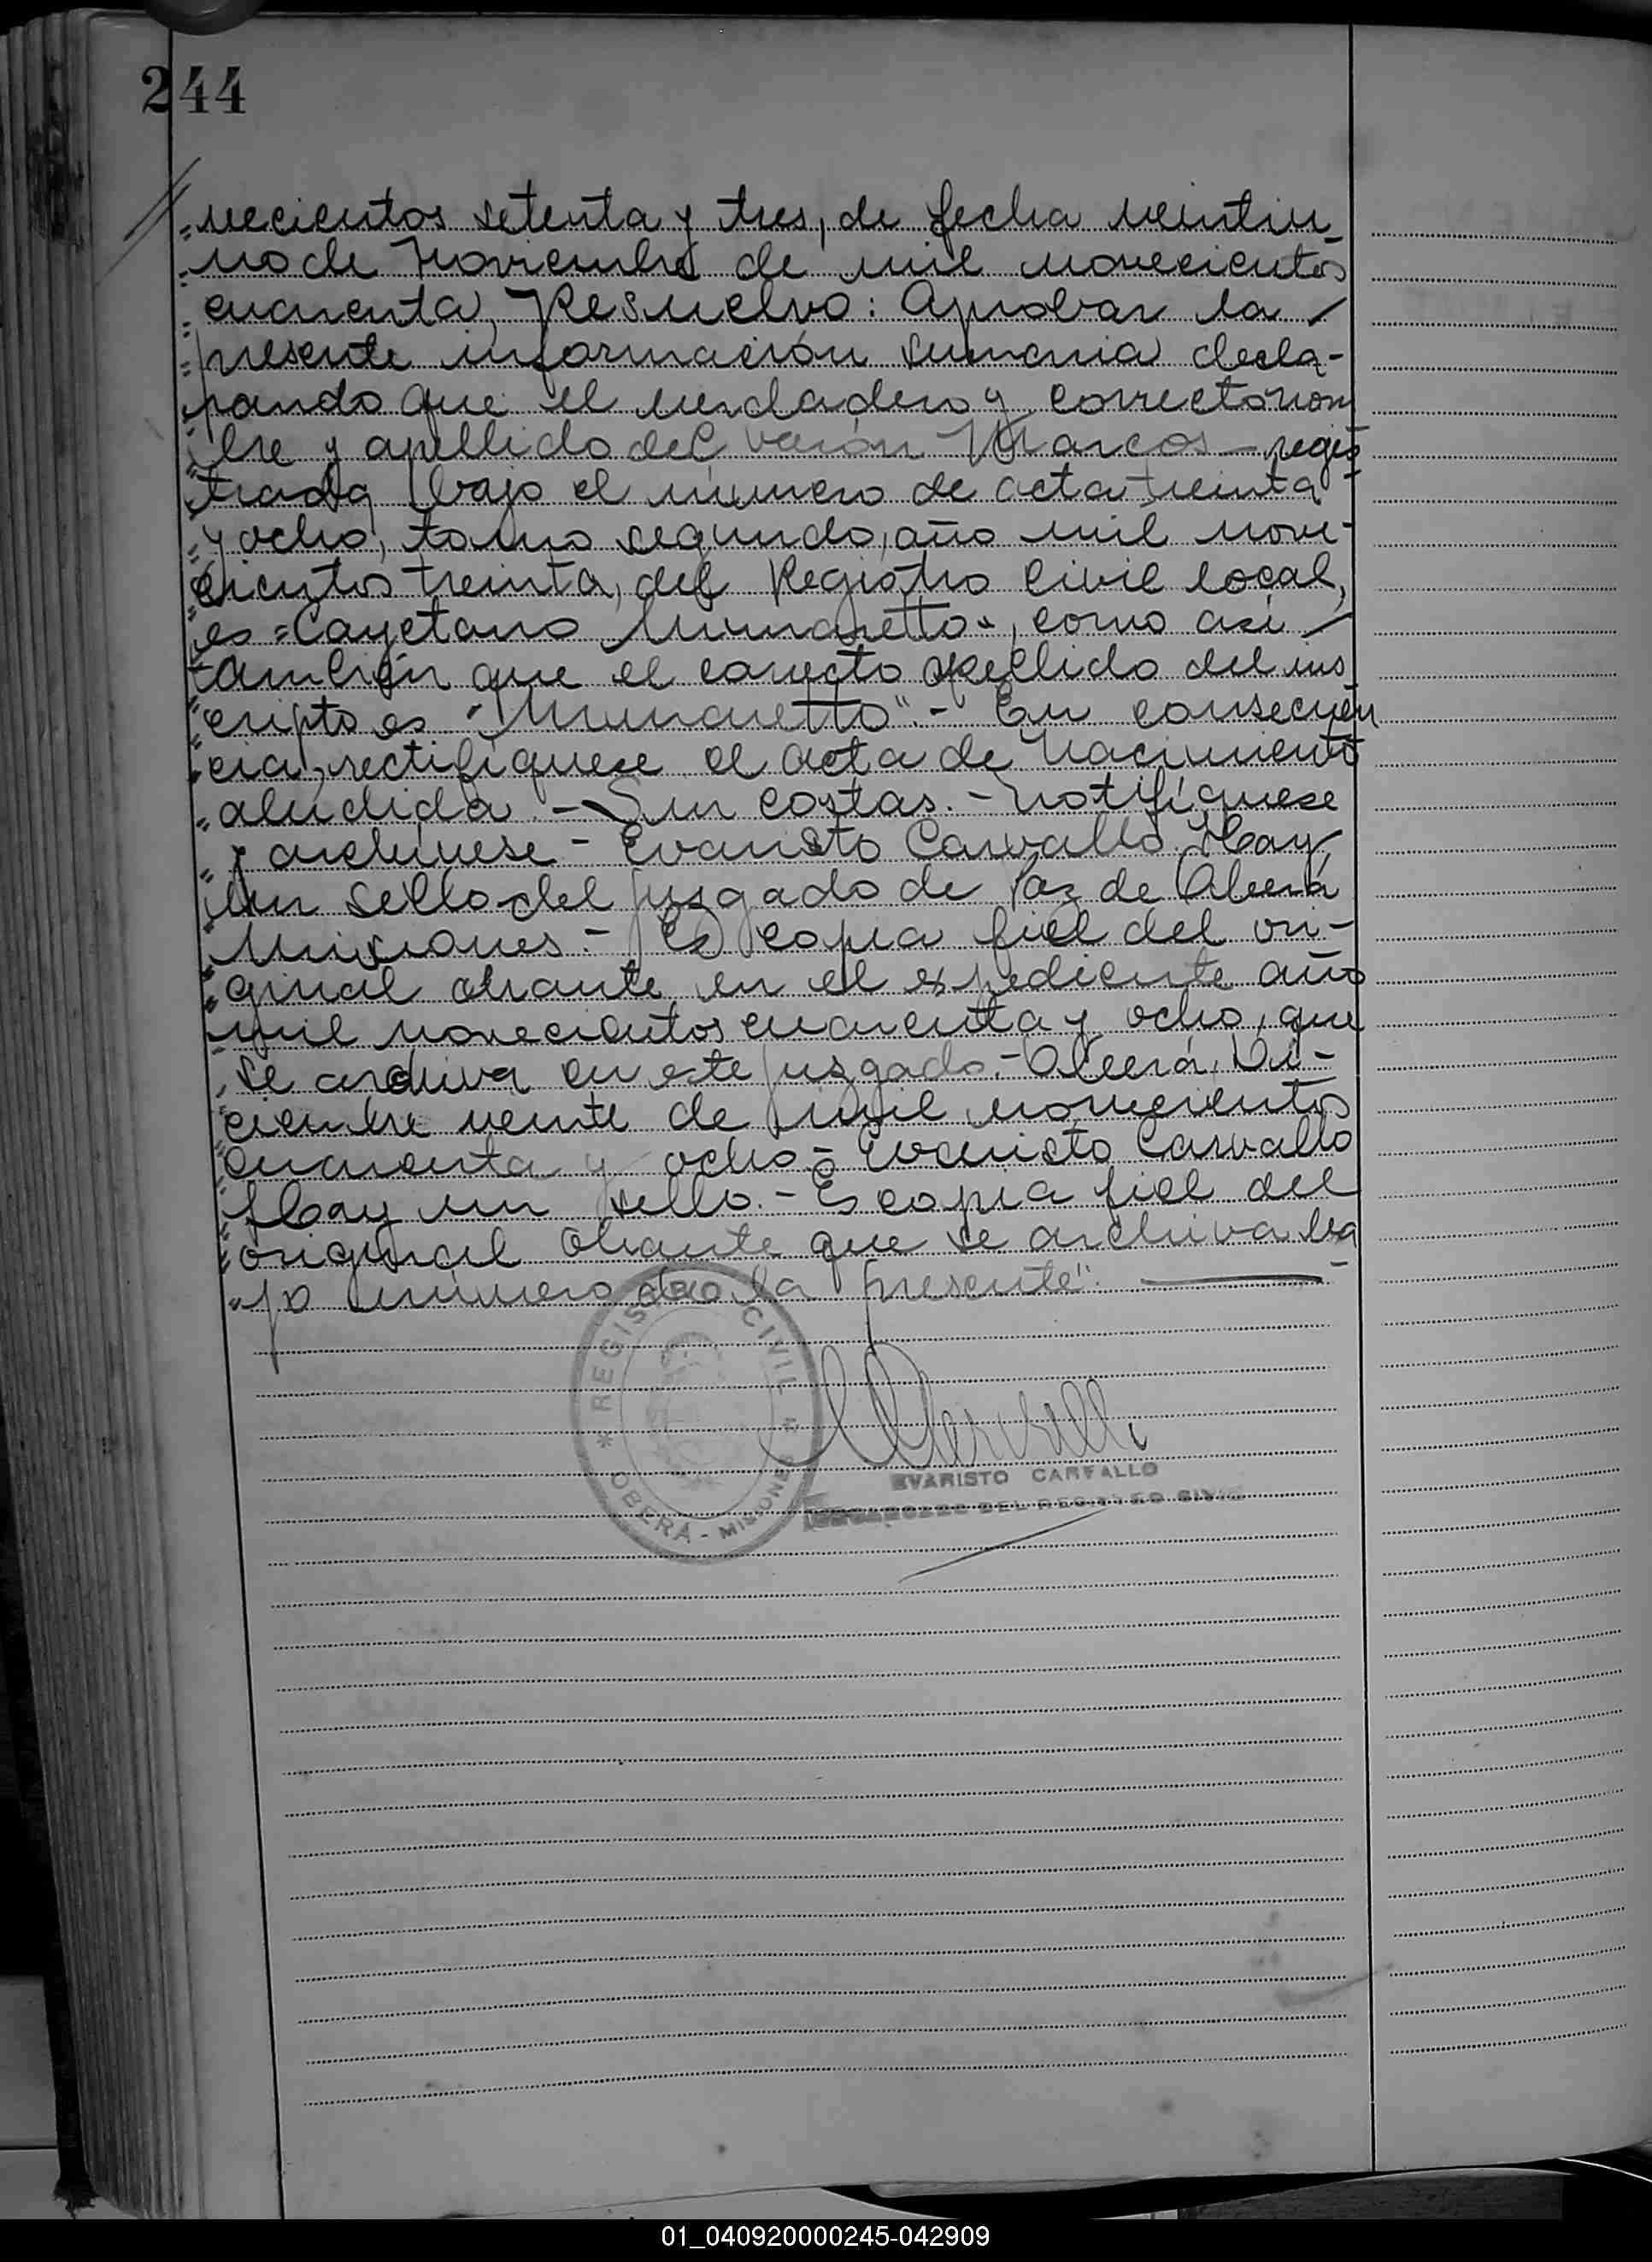 244
"vecientos setenta y tres, de fecha veintiu
"no de Noviembre de mil novecientos
"cuarenta, Resuelvo: Aprobar la /
"presente información sumaria decla-
"rando que el verdadero y correcto nom
"bre y apellido del varón Marcos - regis
"trada bajo el número de acta treinta
"y ocho, tomo segundo, año mil nove-
"cientos treinta, del Registro Civil local,
"es "Cayetano Munaretto", como asi /
"tambien que el correcto apellido del ins
"cripto es "Munaretto".- En consecuen
"cia, rectifiquese el acta de Nacimiento
"aludida.- Sin costas.- Notifíquese
"y archivese - Evaristo Carvallo. Hay
"un sello del Juzgado de Paz de Oberá
"Misiones.- Es copia fiel del ori-
"ginal obrante en el expediente año
"mil novecientos cuarenta y ocho, que
"se archiva en este Juzgado.- Oberá, Di-
"ciembre veinte de mil novecientos
"cuarenta y ocho - Evaristo Carvallo
"Hay un sello.- Es copia fiel del
"original obrante que se archiva ba
"jo número de la presente".
REGISTRO CIVIL
* OBERÁ - MISIONES *
EVARISTO CARVALLO
ENCARGADO DEL REGISTRO CIVIL
01_040920000245-042909